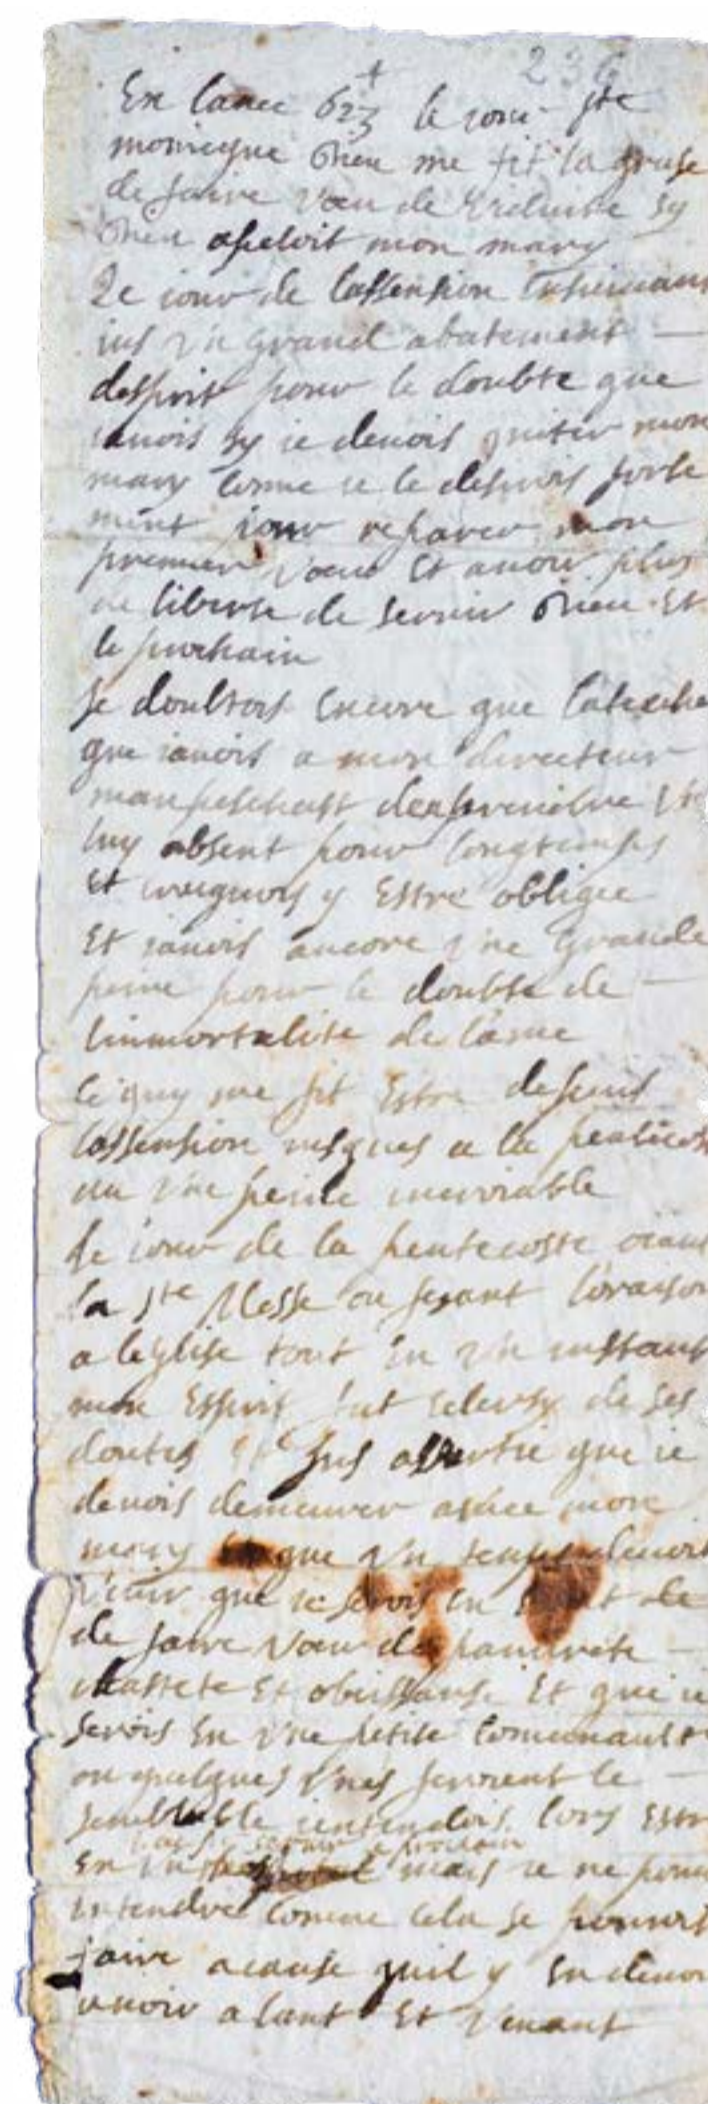 236
+
En lanee 623 le iour Ste
monicque Dieu me fit la grase
de faire voeu de viduite sy
Dieu apeloit mon mary
Le iour de lassension ensuivant
ius un grand abatement —
desprit pour le doubte que
iauois sy ie deuois quiter mon
mary comme ie le desirois forte
ment pour reparer mon
premier voeu Et auoir plus
de liberte de seruir Dieu Et
le prochain
Je doubtois encore que latache
que iauois a mon directeur
manpeschast den prendre
luy absent pour longtemps
Et creignois y Estre obligee
Et iauois ancore une grande
peine pour le doubte de —
linmortalite de lame
Ce quy me fit Estre depuis
lassension iusques a la pentecoste
en une peine incroiable
Le iour de la pentecoste oiant
la Ste Messe ou fesant loraison
a leglise tout en un instant
mon Esprit fut de ses
doutes Et fus advertie que ie
deuois demeurer auec mon
mary Et que un temps deuoit
venir que ie serois en de
de faire voeu de pauvrete —
chastete Et obeissanse Et que ie
serois En une petite comunaute
ou quelques unes feroient le —
semblable ientendois lors Estre
pour seruir le prochain
En un mais ie ne pouuois
entendre comme cela se pouuoit
faire acause quil y en deuoit
auoir alant Et venant